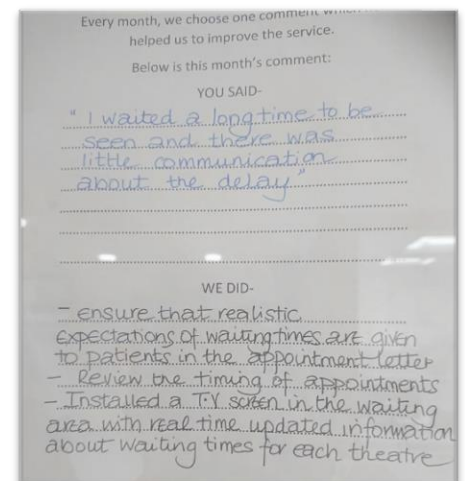 Every month, we choose one comment which
helped us to improve the service.
Below is this month's comment:
YOU SAID-
" I waited a long time to be
seen and there was
little communication
about the delay"
WE DID-
- ensure that realistic
expectations of waiting times are given
to patients in the appointment letter
- Review the timing of appointments
- Installed a T.V screen in the waiting
area with real time updated information
about waiting times for each theatre